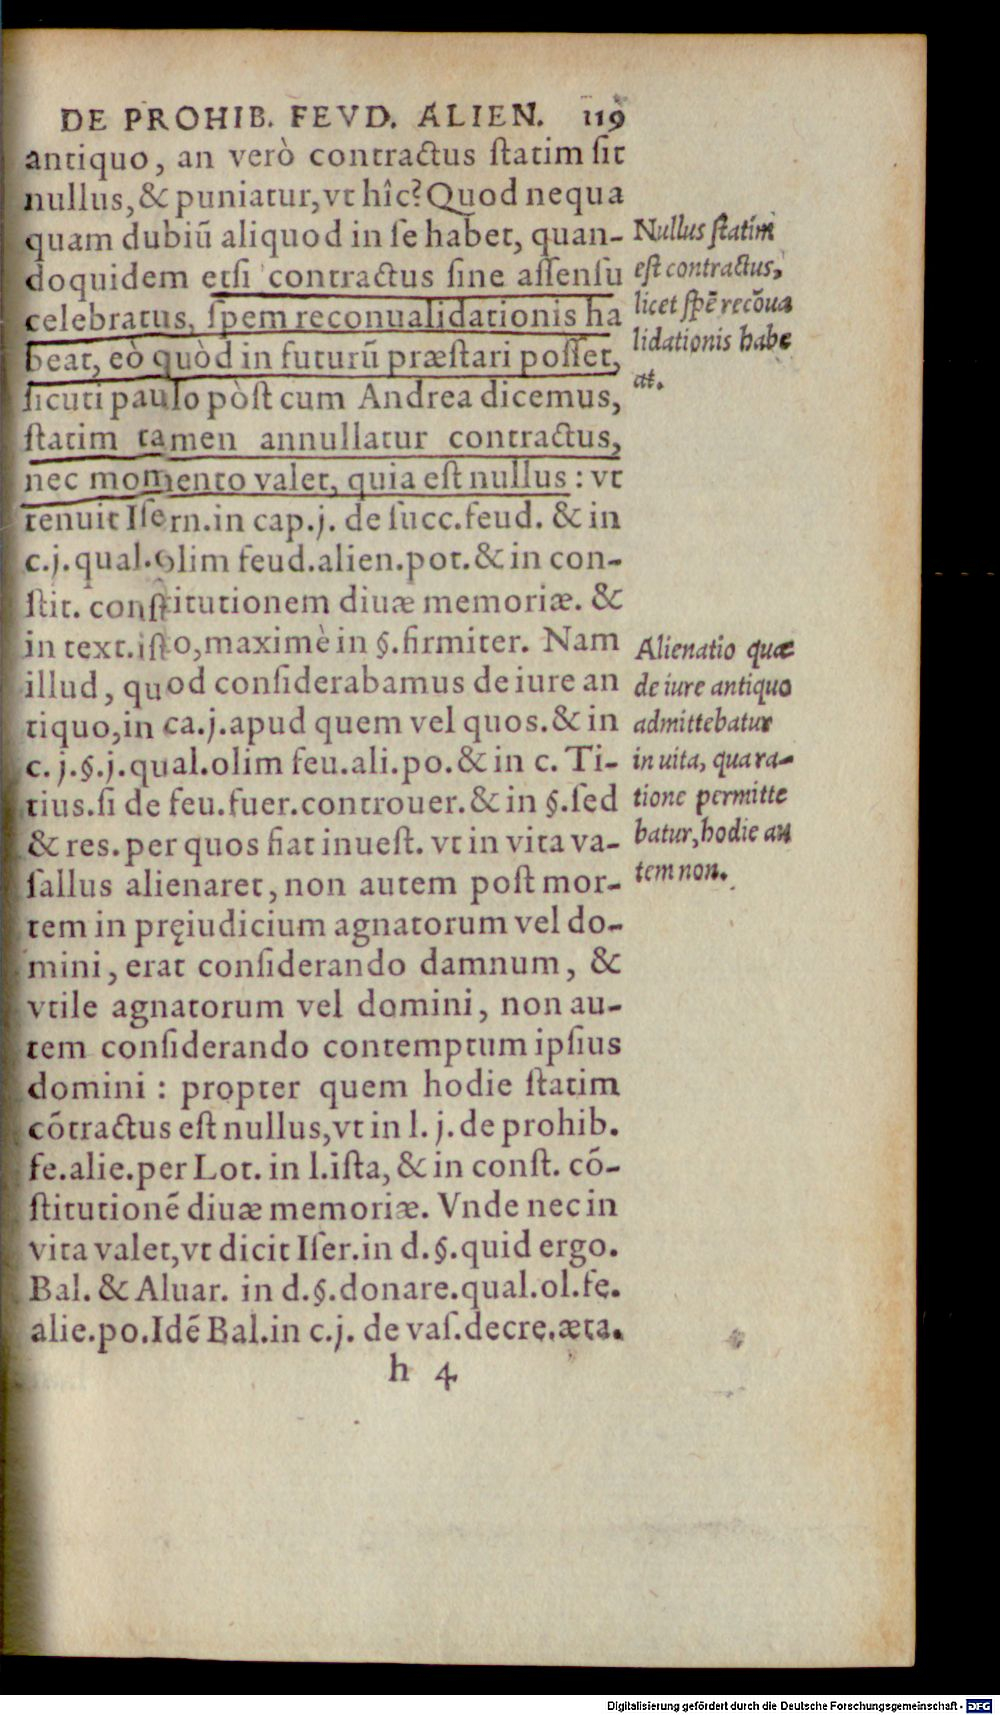 DE PROHIB. FEVD. ALIEN. 119
antiquo, an verò contractus ſtatim ſit
nullus, & puniatur, vt hîc? Quod nequa
quam dubiũ aliquod in ſe habet, quan-
doquidem etſi contractus ſine aſſenſu
celebratus, ſpem reconualidationis ha
beat, eò quòd in futurũ præſtari poſſet,
ſicuti paulo pòſt cum Andrea dicemus,
ſtatim tamen annullatur contractus,
nec momento valet, quia eſt nullus : vt
tenuit Iſern. in cap. j. de ſucc. feud. & in
c. j. qual. olim feud. alien. pot. & in con-
ſtit. conſtitutionem diuæ memoriæ. &
in text. iſto, maximè in §. firmiter. Nam
illud, quod conſiderabamus de iure an
tiquo, in ca. j. apud quem vel quos. & in
c. j. §. j. qual. olim feu. ali. po. & in c. Ti-
tius. ſi de feu. fuer. controuer. & in §. ſed
& res. per quos fiat inueſt. vt in vita va-
ſallus alienaret, non autem poſt mor-
tem in pręiudicium agnatorum vel do-
mini, erat conſiderando damnum, &
vtile agnatorum vel domini, non au-
tem conſiderando contemptum ipſius
domini : propter quem hodie ſtatim
cõtractus eſt nullus, vt in l. j. de prohib.
fe. alie. per Lot. in l. iſta, & in conſt. cõ-
ſtitutionẽ diuæ memoriæ. Vnde nec in
vita valet, vt dicit Iſer. in d. §. quid ergo.
Bal. & Aluar. in d. §. donare. qual. ol. fe.
alie. po. Idẽ Bal. in c. j. de vaſ. decre. æta.
h 4
Nullus ſtatim
eſt contractus,
licet ſpẽ recõua
lidationis habe
at.
Alienatio quæ
de iure antiquo
admittebatur
in uita, qua ra-
tione permitte
batur, hodie au
tem non.
Digitalisierung gefördert durch die Deutsche Forschungsgemeinschaft - DFG